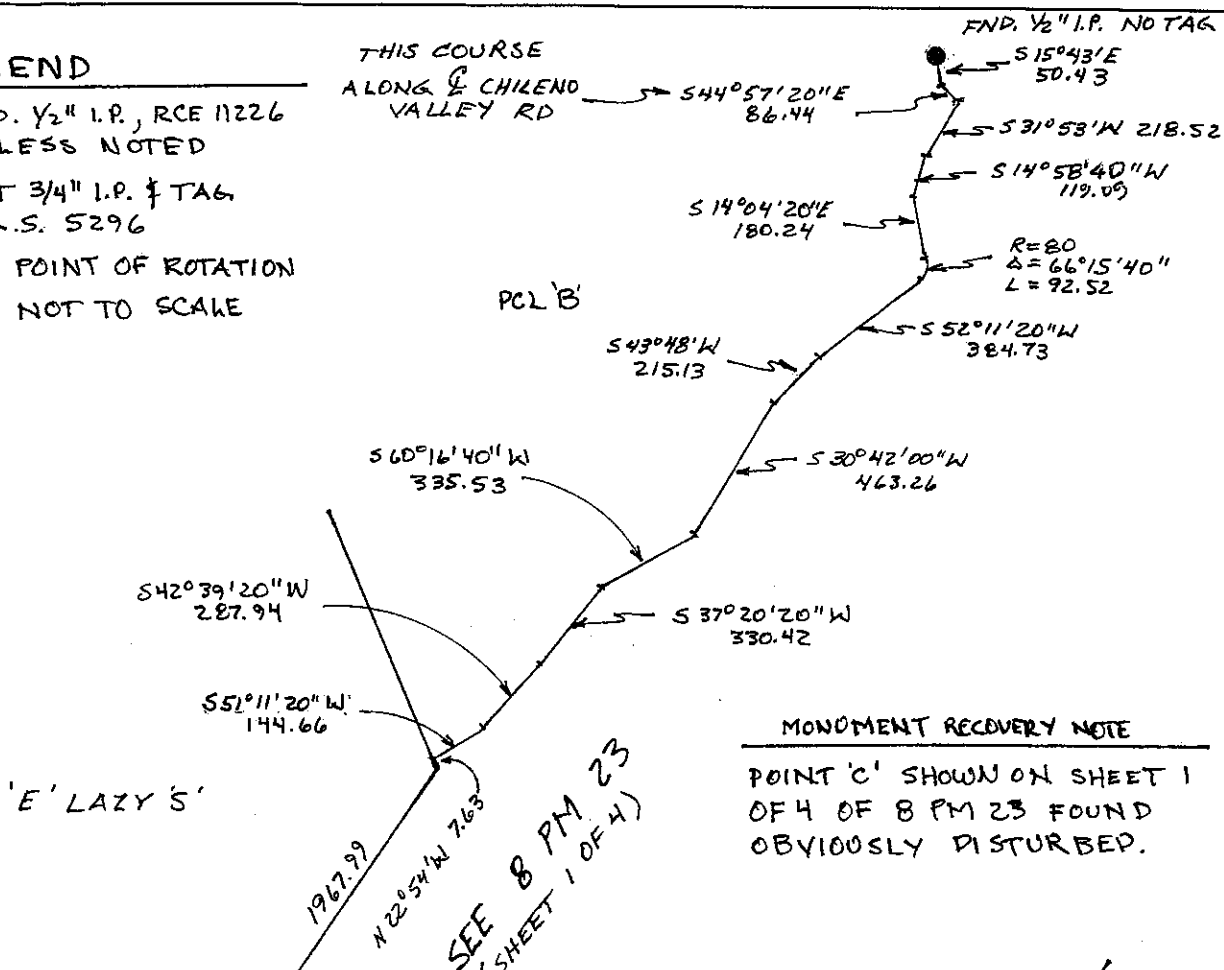 END
D. 1/2" I.P., RCE 11226
LESS NOTED
T 3/4" I.P. & TAG
L.S. 5296
POINT OF ROTATION
NOT TO SCALE
THIS COURSE
ALONG ℄ CHILENO
VALLEY RD
S44°57'20"E
86.44
FND. 1/2" I.P. NO TAG
S 15°43'E
50.43
S 31°53'W 218.52
S 14°58'40"W
119.09
S 14°04'20"E
180.24
R=80
Δ=66°15'40"
L=92.52
PCL 'B'
S 52°11'20"W
384.73
S 43°48'W
215.13
S 30°42'00"W
463.26
S 60°16'40"W
335.53
S 42°39'20"W
287.94
S 37°20'20"W
330.42
S 11'20"W
144.66
N 22°54'W 7.63
1967.99
'E' LAZY 'S'
SEE 8 PM 23
(SHEET 1 OF 4)
MONUMENT RECOVERY NOTE
POINT 'C' SHOWN ON SHEET 1
OF 4 OF 8 PM 23 FOUND
OBVIOUSLY DISTURBED.